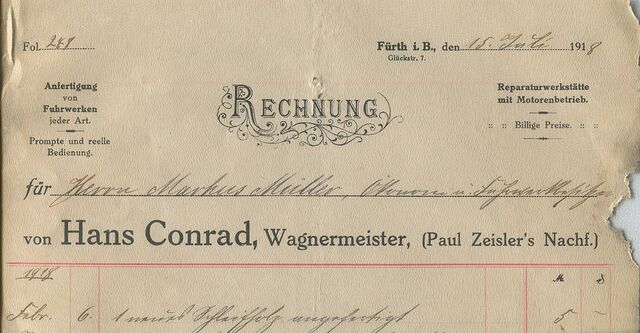 Fol. 248
Fürth i. B., den 15. Juli 1918
Glückstr. 7.
Anfertigung
von
Fuhrwerken
jeder Art.
Prompte und reelle
Bedienung.
RECHNUNG
Reparaturwerkstätte
mit Motorenbetrieb.
Billige Preise.
für Herrn Markus Müller, Ökonom u. Fuhrwerkbesitzer
von Hans Conrad, Wagnermeister, (Paul Zeisler's Nachf.)
1918 M ₰
Febr. 6. 1 neues Schleifholz angefertigt 5 –